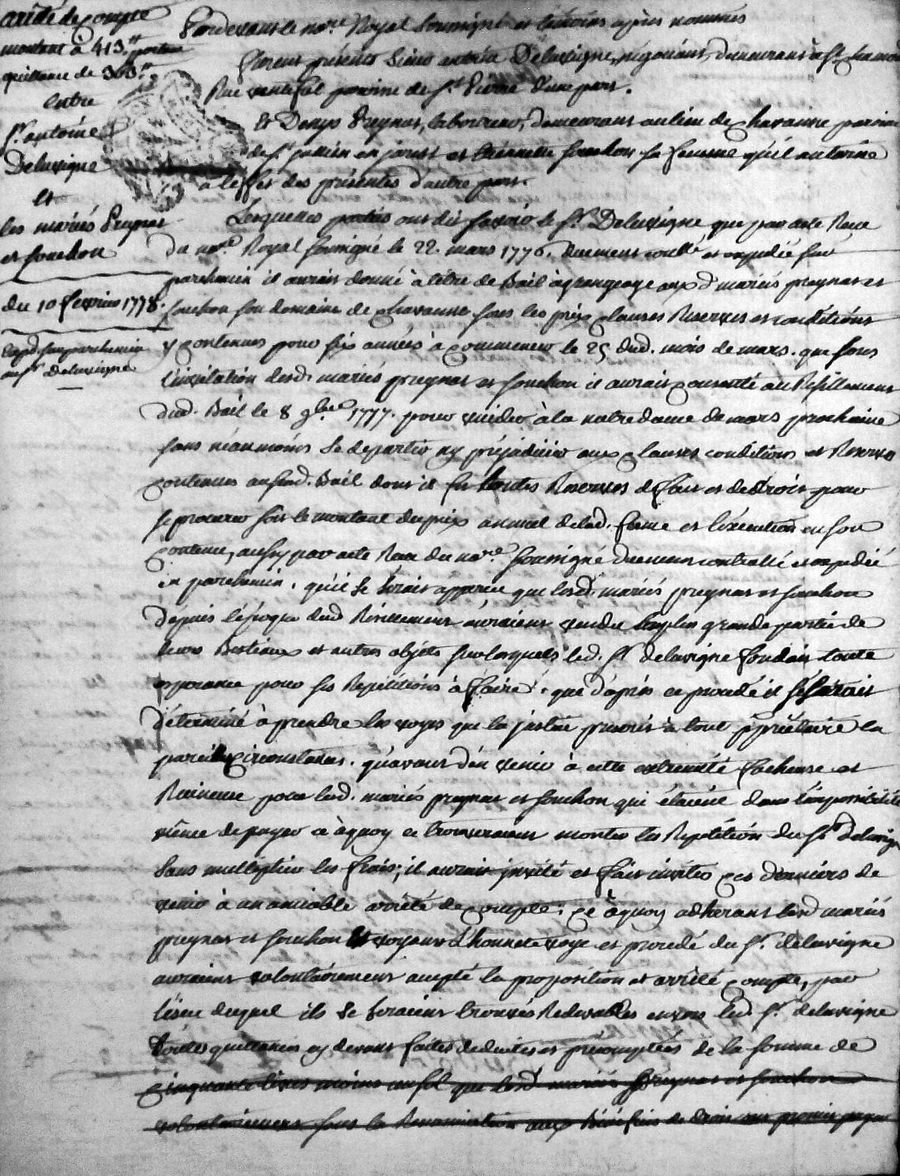 arrêté de compte
montant à 413 ₶ portant
quittance de 363 ₶
entre
Sr. antoine
Delavigne
et
les mariés Preynat
et souchon
du 10 fevrier 1778.
exped. en parchemin
au Sr. delavigne
Pardevant le nore. Royal soussigné et témoins après nommés
furent présents Sieur antoine Delavigne, négociant, demeurant à St. chamond
Rue paroisse de St. Pierre d'une part.
Et Denys Preynat, laboureur, demeurant au lieu de chavanne paroisse
de St. julien en jarest et souchon sa femme qu'il autorise
à l'effet des présentes d'autre part.
Lesquelles parties ont dit savoir le Sr. Delavigne que par acte Reçu
du nore. Royal soussigné le 22. mars 1776. duement conlé. et expedié sur
parchemin il aurait donné à titre de Bail à grangeage auxd. mariés preynat et
souchon son domaine de chavanne sous les prix, clauses Reserves et conditions
y contenues pour six années à commencer le 25 dud. mois de mars. que sous
l'invitation desd. mariés preynat et souchon il aurait consenti au Resiliement
dud. Bail le 8 9bre 1777. pour vuider à la notre dame de mars prochaine
sans néanmoins se departir ny préjudicier aux clauses conditions et Reserves
contenues ausud. Bail dont il fit toutes Reserves de fait et de droit pour
se procurer soit le montant du prix annuel de lad. ferme et l'exécution en son
contenu, aussy par acte Reçu du nore. soussigné duement controllé et expedié
en parchemin. qu'il se serait apperçu que lesd. mariés preynat et souchon
depuis l'époque dud. Résiliement auraient vendu la plus grande partie de
leurs Bestiaux et autres objets sur lesquels led. Sr. delavigne fondait toute
esperance pour ses Repétitions à faire. que d'après ce procédé il se serait
déterminé à prendre les voyes que la justice à tout propriétaire en
pareille circonstance. qu'avant d'en venir à cette extremité facheuse et
Ruineuse pour lesd. mariés preynat et souchon qui étaient dans l'impossibilité
même de payer ce à quoy se trouveraient monter les Repétition du Sr. delavigne
sans multiplier les frais; il aurait invité et fait inviter ces derniers de
venir à un amiable arrêté de compte; ce à quoy adhérant lesd. mariés
preynat et souchon et voyant l'honnete voye et procédé du Sr. delavigne
auraient volontairement accepté la proposition et arrêté compte, par
l'issue duquel ils se seraient trouvés Redevables envers led. Sr. delavigne
toutes quittances cy devant faites deduites et précomptées de la somme de
cinquante livres moins un sol que lesd. mariés Preynat et souchon
volontairement sous la Renonciation aux Bénéfices de droit